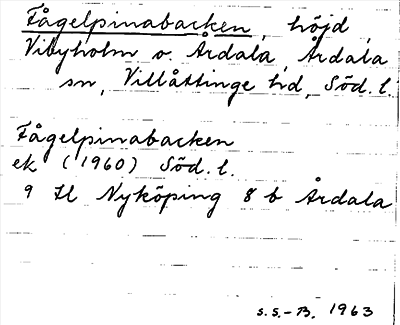 Fågelpinabacken, höjd,
Vibyholm o. Årdala, Årdala
sn, Villåttinge hd, Söd. l.
Fågelpinabacken
ek (1960) Söd. l.
9 H Nyköping 8 b Årdala
S.S.-B. 1963